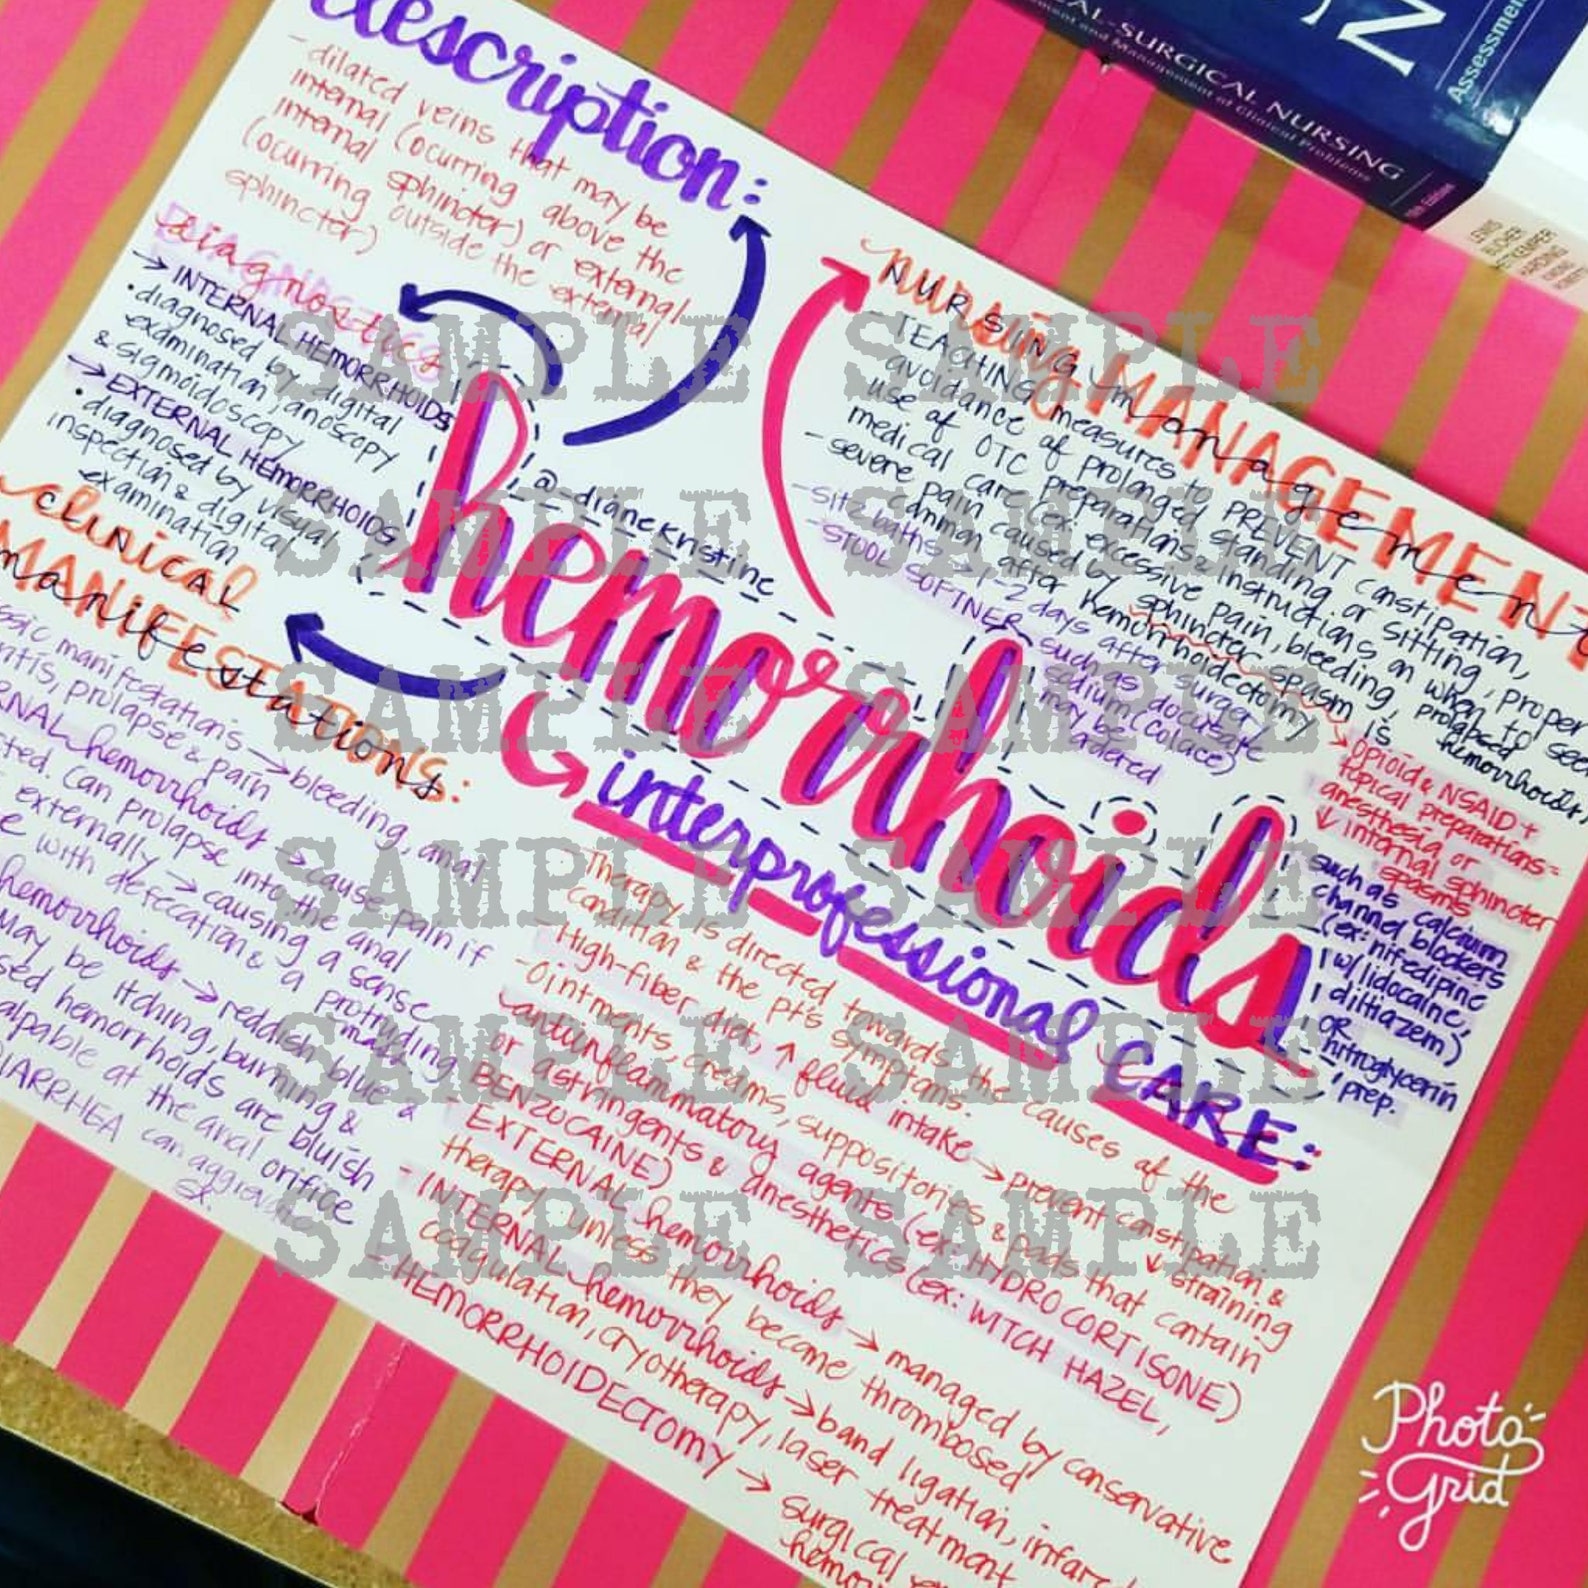 description:
- dilated veins that may be
internal (ocurring above the
internal sphincter) or external
(ocurring outside the external
sphincter)
diagnostics
→ INTERNAL HEMORRHOIDS
• diagnosed by digital
examination, anoscopy
& sigmoidoscopy
→ EXTERNAL HEMORRHOIDS
• diagnosed by visual
inspection & digital
examination
CLINICAL
MANIFESTATIONS:
manifestations → bleeding, anal
prolapse & pain
hemorrhoids → cause pain if
Can prolapse into the anal
externally → causing a sense
with defecation & a protruding
mass
hemorrhoids → reddish blue &
may be itching, burning &
hemorrhoids are bluish
at the anal orifice
DIARRHEA can aggravate
sx.
hemorrhoids
@-dianekristine
NURSING MANAGEMENT
- TEACHING measures to PREVENT constipation,
avoidance of prolonged standing or sitting, proper
use of OTC preparations & instructions on when to seek
medical care (ex: excessive pain, bleeding, prolapsed hemorrhoids)
- severe pain caused by sphincter spasm is
common after hemorrhoidectomy
→ opioid & NSAID +
topical preparations =
anesthesia or
↓ internal sphincter
spasms
such as calcium
channel blockers
(ex: nifedipine
w/ lidocaine,
diltiazem)
OR
nitroglycerin
prep.
- sitz baths → 1-2 days after surgery
- STOOL SOFTNER such as docusate
sodium (Colace)
may be
ordered
interprofessional CARE:
- Therapy is directed towards the causes of the
condition & the pt's symptoms.
- High-fiber diet, ↑ fluid intake → prevent constipation &
↓ straining
- Ointments, creams, suppositories & pads that contain
antiinflammatory agents (ex: HYDROCORTISONE)
or astringents & anesthetics (ex: WITCH HAZEL,
BENZOCAINE)
- EXTERNAL hemorrhoids → managed by conservative
therapy unless they become thrombosed
- INTERNAL hemorrhoids → band ligation, infared
coagulation, cryotherapy, laser treatment
- HEMORRHOIDECTOMY → surgical
SURGICAL NURSING
Assessment and Management of Clinical Problems
Assessment
LEWIS
BUCHER
HEITKEMPER
HARDING
SAMPLE SAMPLE
SAMPLE SAMPLE
SAMPLE SAMPLE
SAMPLE SAMPLE
SAMPLE SAMPLE
SAMPLE SAMPLE
Photo
Grid